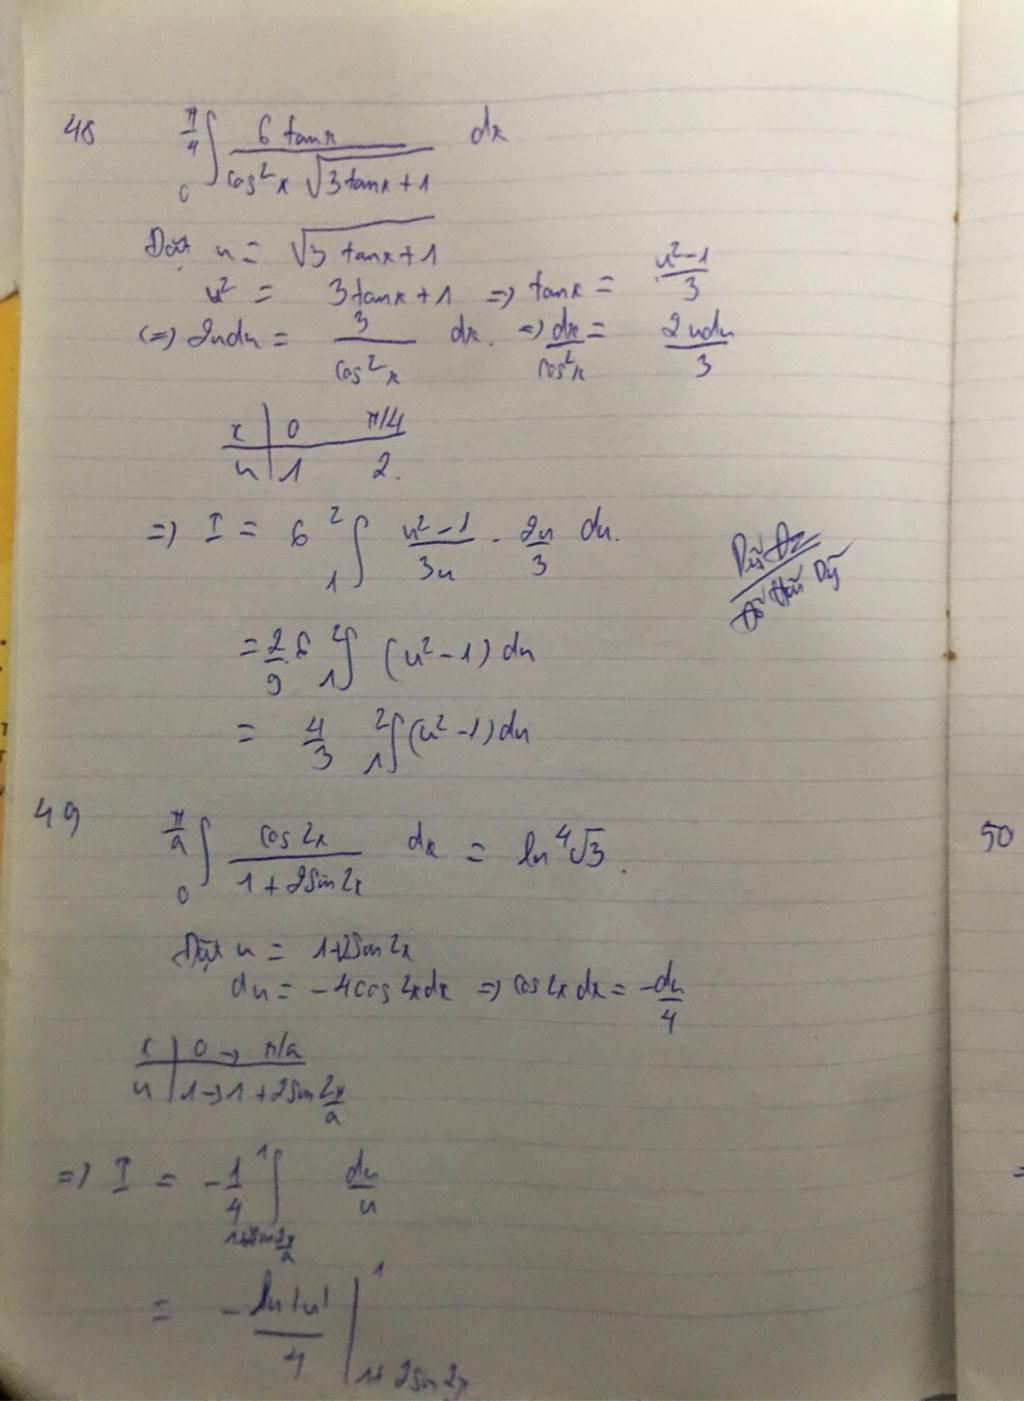 48 π/4 ∫ 0 6 tanx / cos²x √3tanx + 1 dx
Đặt u = √3 tanx + 1
u² = 3tanx + 1 => tanx = u² - 1 / 3
(=) 2udu = 3 / cos²x dx. => dx / cos²x = 2udu / 3
x | 0 π/4
u | 1 2.
=> I = 6 2 ∫ 1 u² - 1 / 3u . 2u / 3 du.
= 2/9 . 6 2 ∫ 1 (u² - 1) du
= 4/3 2 ∫ 1 (u² - 1) du
49 π/a ∫ 0 cos 2x / 1 + 2sin 2x dx = ln ⁴√3.
50
Đặt u = 1+2sin 2x
du = - 4cos 2xdx => cos 2x dx = - du / 4
x | 0 → π/a
u | 1 → 1 + 2sin 2π/a
=> I = - 1/4 1 ∫ 1+2sin 2π/a du / u
=
= - ln|u| / 4 | 1 1 + 2sin 2π